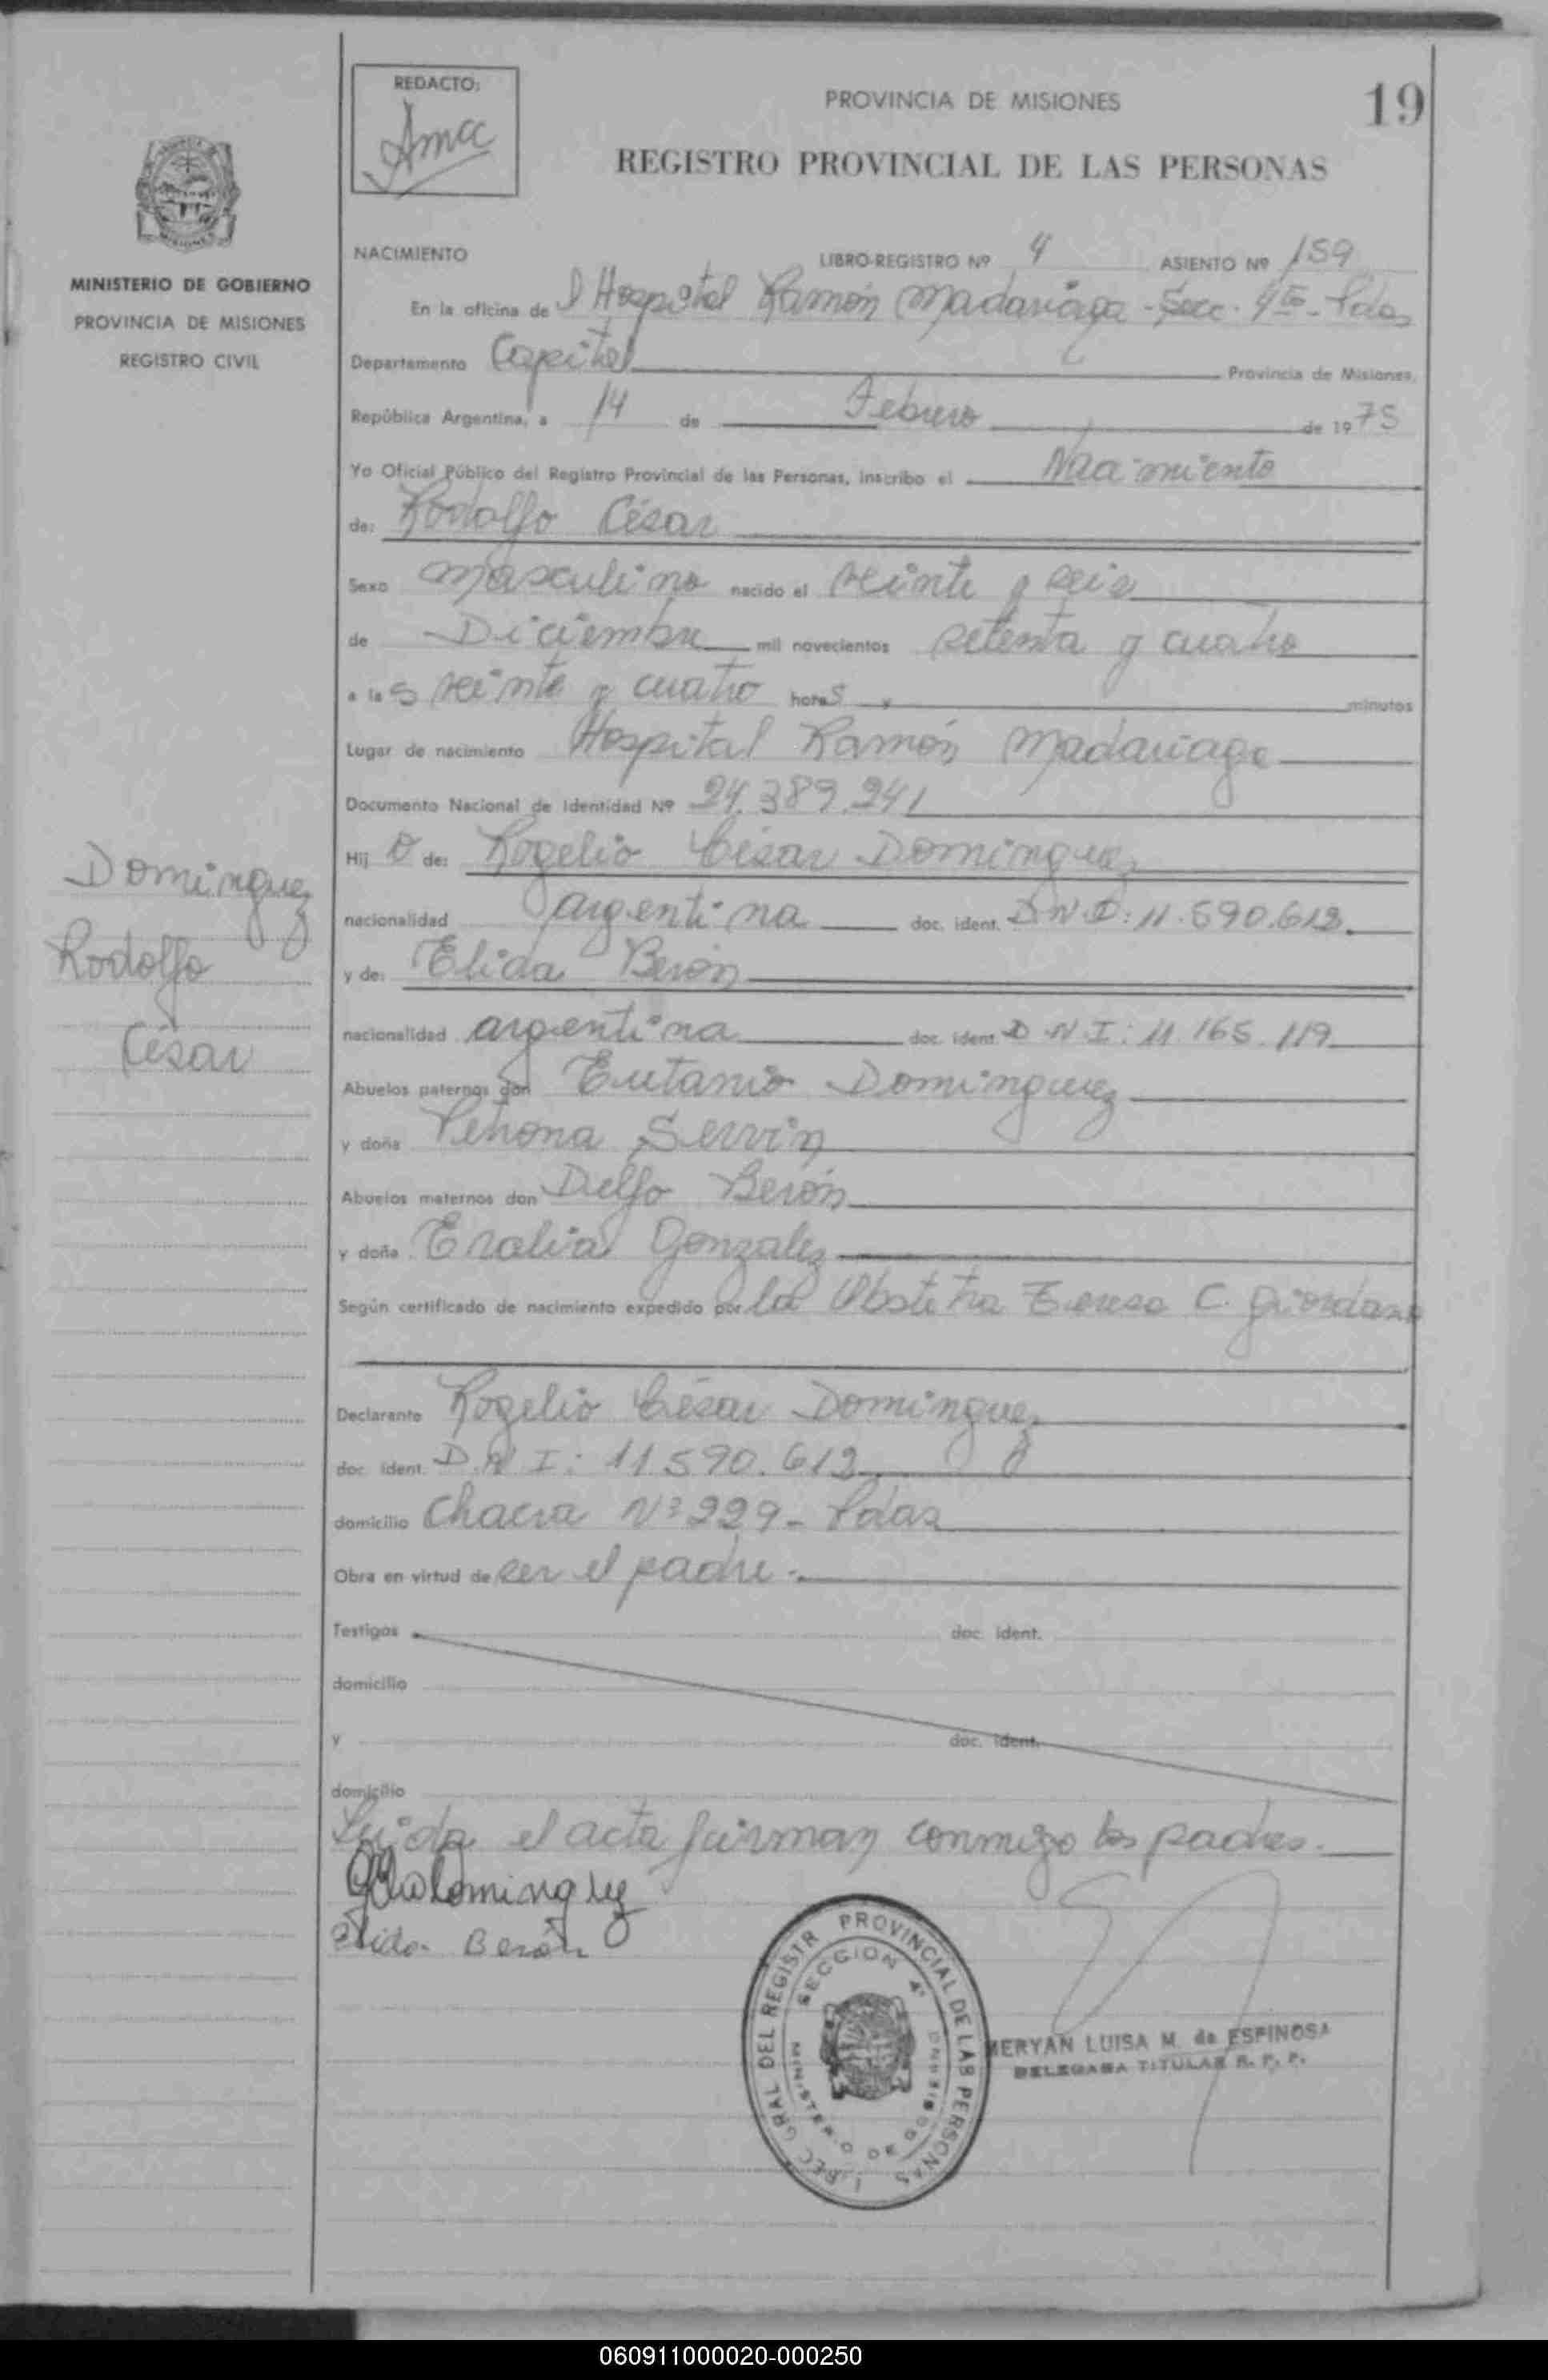 REDACTO:
Amcc
PROVINCIA DE MISIONES
19
REGISTRO PROVINCIAL DE LAS PERSONAS
MINISTERIO DE GOBIERNO
PROVINCIA DE MISIONES
REGISTRO CIVIL
NACIMIENTO LIBRO-REGISTRO Nº 4 ASIENTO Nº 159
En la oficina del Hospital Ramón Madariaga - Secc. 4ta - Pdas
Departamento Capital Provincia de Misiones,
República Argentina, a 14 de Febrero de 1975
Yo Oficial Público del Registro Provincial de las Personas, inscribo el Nacimiento
de: Rodolfo César
Sexo masculino nacido el veinte y seis
de Diciembre mil novecientos setenta y cuatro
a las veinte y cuatro horas y minutos
Lugar de nacimiento Hospital Ramón Madariaga
Documento Nacional de Identidad Nº 24.389.241
Hijo de: Rogelio César Dominguez
nacionalidad argentina doc. ident. D.N.I: 11.590.612
y de: Elida Berón
nacionalidad argentina doc. ident. D.N.I: 11.165.119
Abuelos paternos don Eutanio Dominguez
y doña Servin
Abuelos maternos don Delfo Berón
y doña Eralia Gonzalez
Según certificado de nacimiento expedido por la Obstetra Teresa C. Giordano
Declarante Rogelio César Dominguez
doc. ident. D.N.I: 11.590.612
domicilio Chacra Nº 229 - Pdas
Obra en virtud de ser el padre.
Testigos doc. ident.
domicilio
y doc. ident.
domicilio
Leida el acta firman conmigo los padres.
Dominguez
Elida Berón
Dominguez
Rodolfo
César
DIREC. GRAL DEL REGISTR PROVINCIAL DE LAS PERSONAS
SECCION 4ª
MINISTERIO DE GOBIERNO
MERYAN LUISA M. de ESPINOSA
DELEGADA TITULAR R. P. P.
060911000020-000250